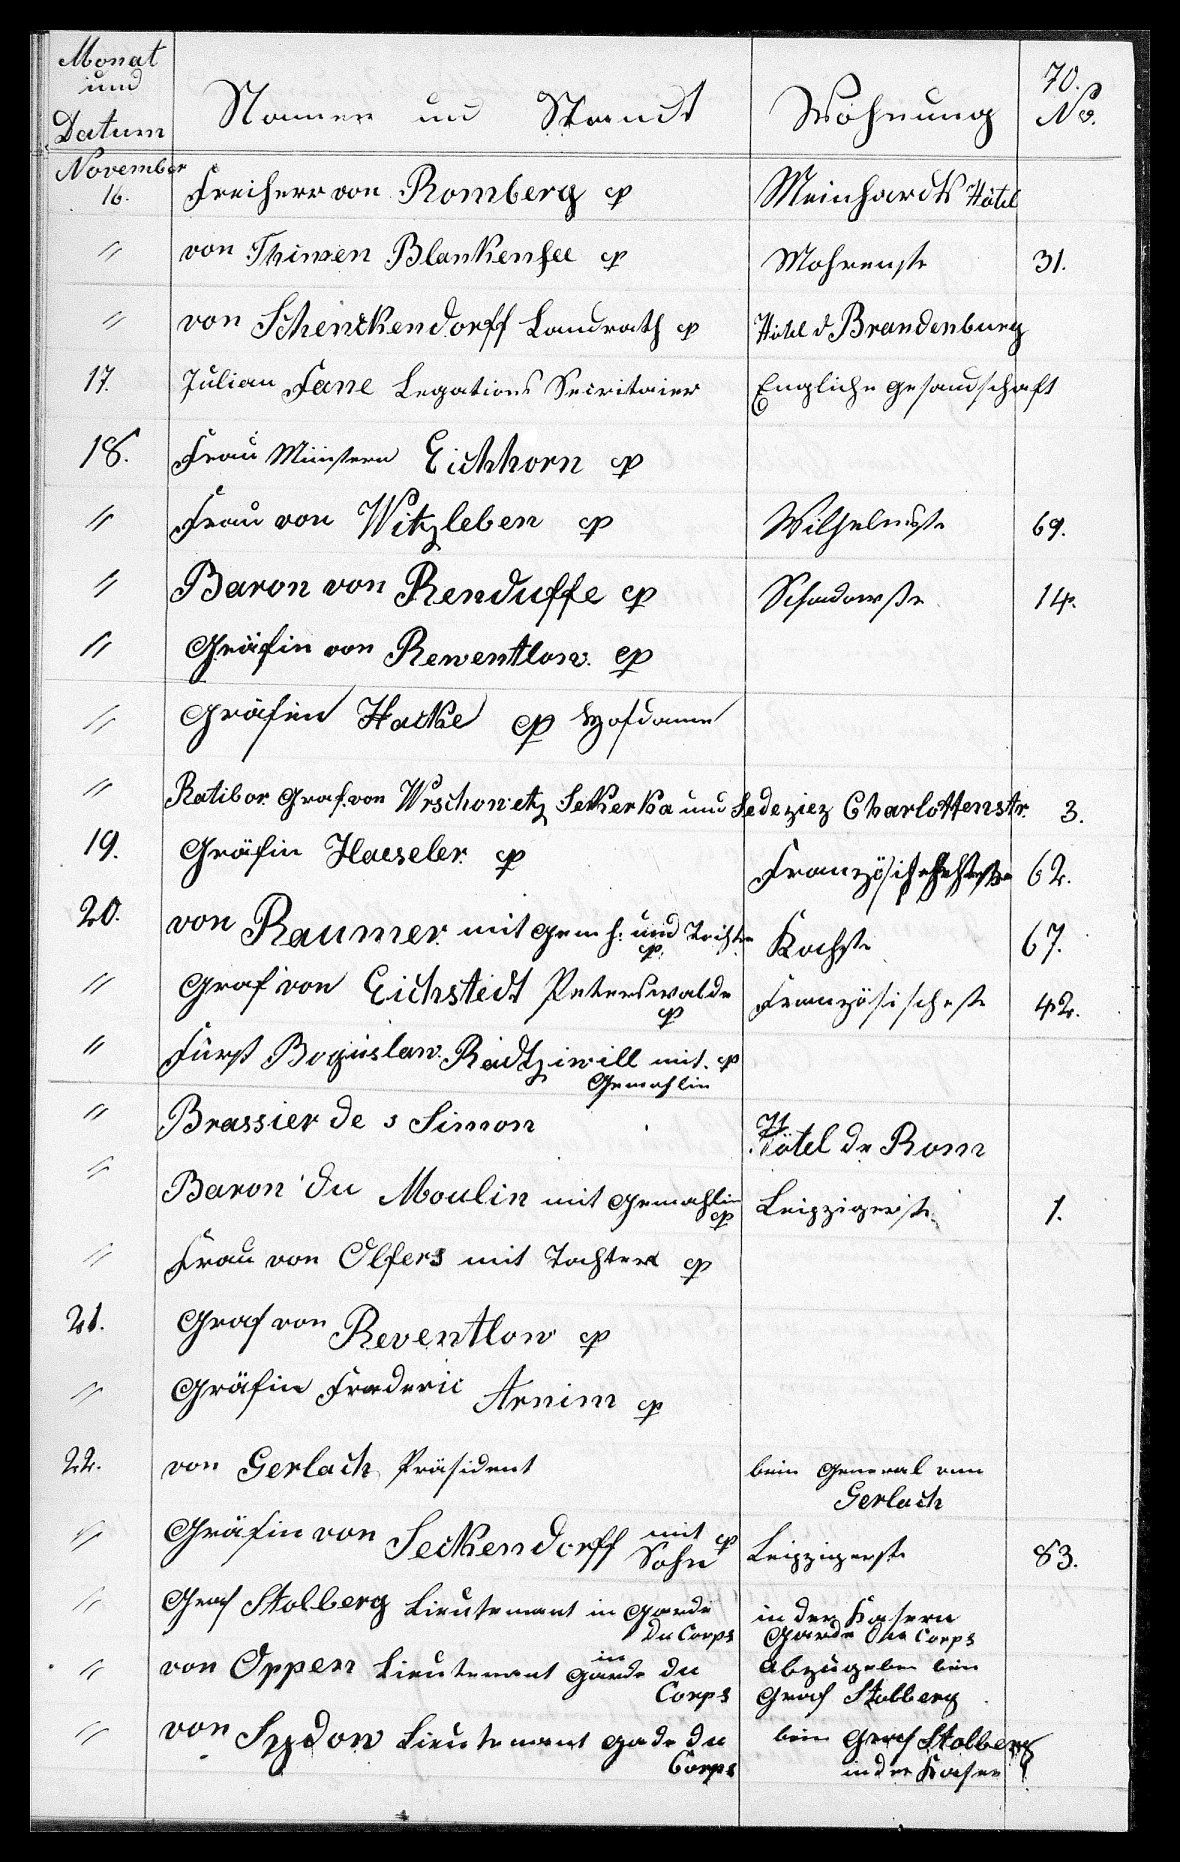 Monat und Datum Namen und Standt Wohnung 70. No.
November 16. Freiherr von Romberg cp Meinhardts Hôtel
" von Thimen Blankensee cp Mohrenstr 31.
" von Schenckendorff Landrath cp Hôtel d Brandenburg
17. Julian Fane Legations Secritaier Engliche Gesandschaft
18. Frau Ministern Eichhorn cp
" Frau von Witzleben cp Wilhelmstr 69.
" Baron von Renduffe cp Schadowstr. 14.
" Gräfin von Rewentlow. cp
" Gräfin Hacke cp Hofdame
" Ratibor Graf. von Wrschowetz Sekerka und Sedeziez Charlottenstr. 3.
19. Gräfin Haeseler. cp Französischestr 62.
20. von Raumer. mit Gemh: und Tochter cp. Kochstr 67.
" Graf von Eichstedt Peterswalde cp Französischestr 42.
" Fürst Boguslaw. Radtziwill mit. cp
Gemahlin
" Brassier de s Simon Hôtel de Rom
" Baron du Moulin mit Gemahlin cp Leipzigerstr. 1.
" Frau von Olfers mit Tochter cp
21. Graf von Reventlow cp
" Gräfin Frederic Arnim cp
22. von Gerlach Präsident beim General von
Gerlach
" Gräfin von Seckendorff mit Sohn cp Leipzigerstr 83.
" Graf Stolberg Lieutenant in Garde in der Kasern
Du Corps Garde Du Corps
" von Oppen Lieutenant in Garde du Abzugeben bein
Corps Graf Stolberg
" von Sydow Lieutenant Gade du bein Graf Stolberg
Corps in der Kasern